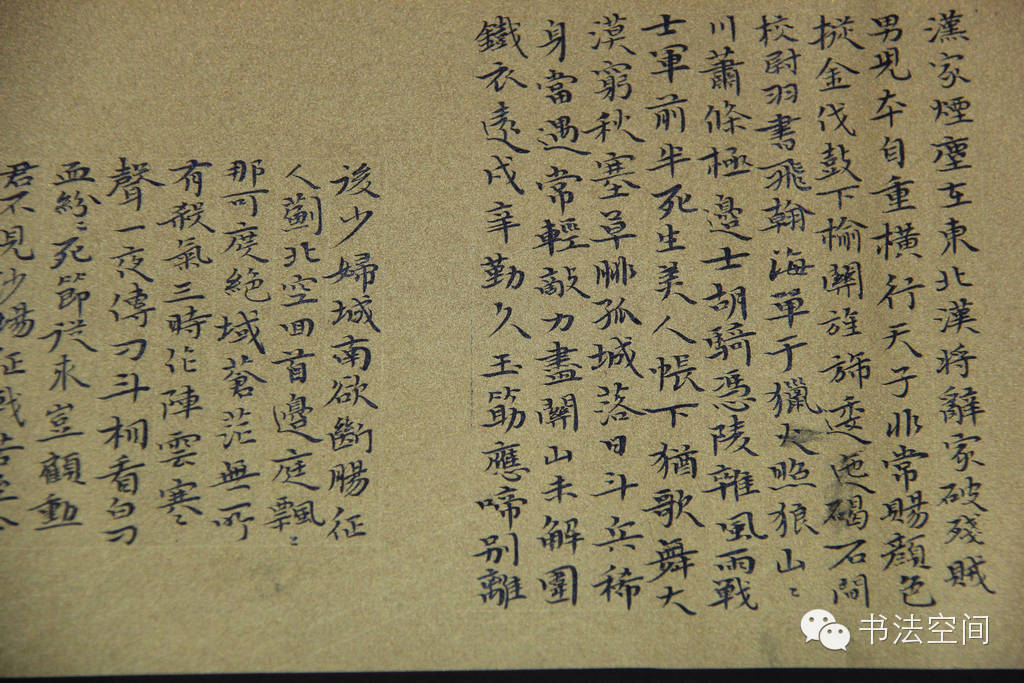 漢家煙塵在東北漢將辭家破殘賊
男兒本自重橫行天子非常賜顏色
摐金伐鼓下榆關旌旆逶迤碣石間
校尉羽書飛翰海單于獵火照狼山〻
川蕭條極邊士胡騎憑陵雜風雨戰
士軍前半死生美人帳下猶歌舞大
漠窮秋塞草腓孤城落日斗兵稀
身當遇常輕敵力盡關山未解圍
鐵衣遠戍辛勤久玉筯應啼別離
後少婦城南欲斷腸征
人薊北空回首邊庭飄〻
那可度絕域蒼茫無所
有殺氣三時作陣雲寒〻
聲一夜傳刁斗相看白刃
血紛〻死節從來豈顧勳
君不見沙場征戰苦至今
书法空间